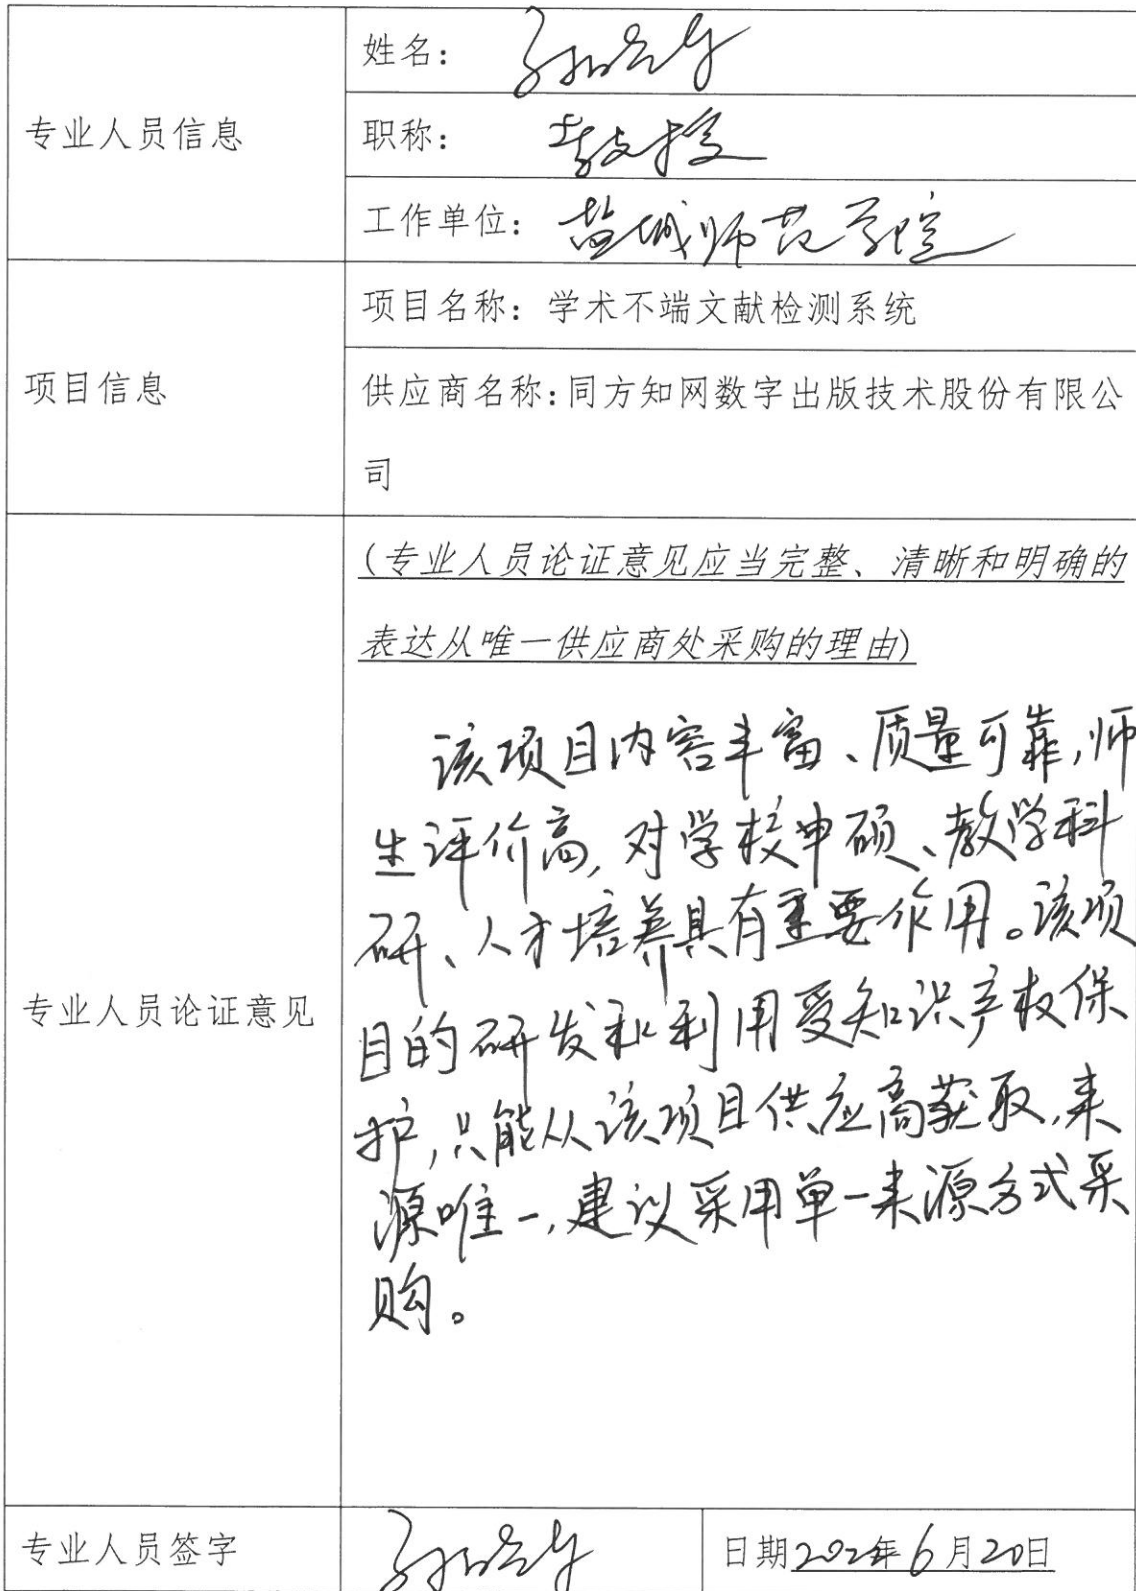 专业人员信息
姓名：
职称： 教授
工作单位： 盐城师范学院
项目信息
项目名称：学术不端文献检测系统
供应商名称：同方知网数字出版技术股份有限公
司
专业人员论证意见
（专业人员论证意见应当完整、清晰和明确的
表达从唯一供应商处采购的理由）
该项目内容丰富、质量可靠,师
生评价高,对学校申硕、教学科
研、人才培养具有重要作用。该项
目的研发和利用受知识产权保
护,只能从该项目供应商获取,来
源唯一,建议采用单一来源方式采
购。
专业人员签字
日期2022年6月20日